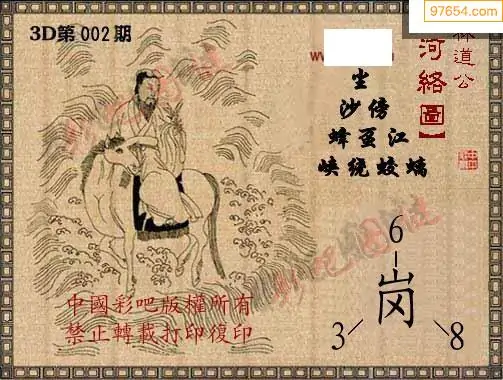 97654.com
3D第002期
ww
林道公
河絡圖】
尘
沙傍
蜂虿江
峡绕蛟螭
6
岗
3 8
中國彩吧版權所有
禁止轉載打印復印